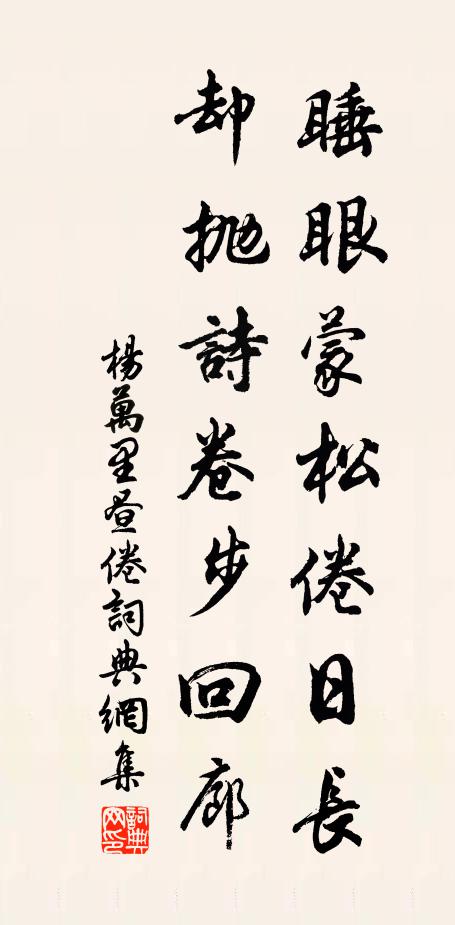 睡眼蒙松倦日長
却抛詩卷步回廊
楊萬里昼倦詞典網集
詞典网印